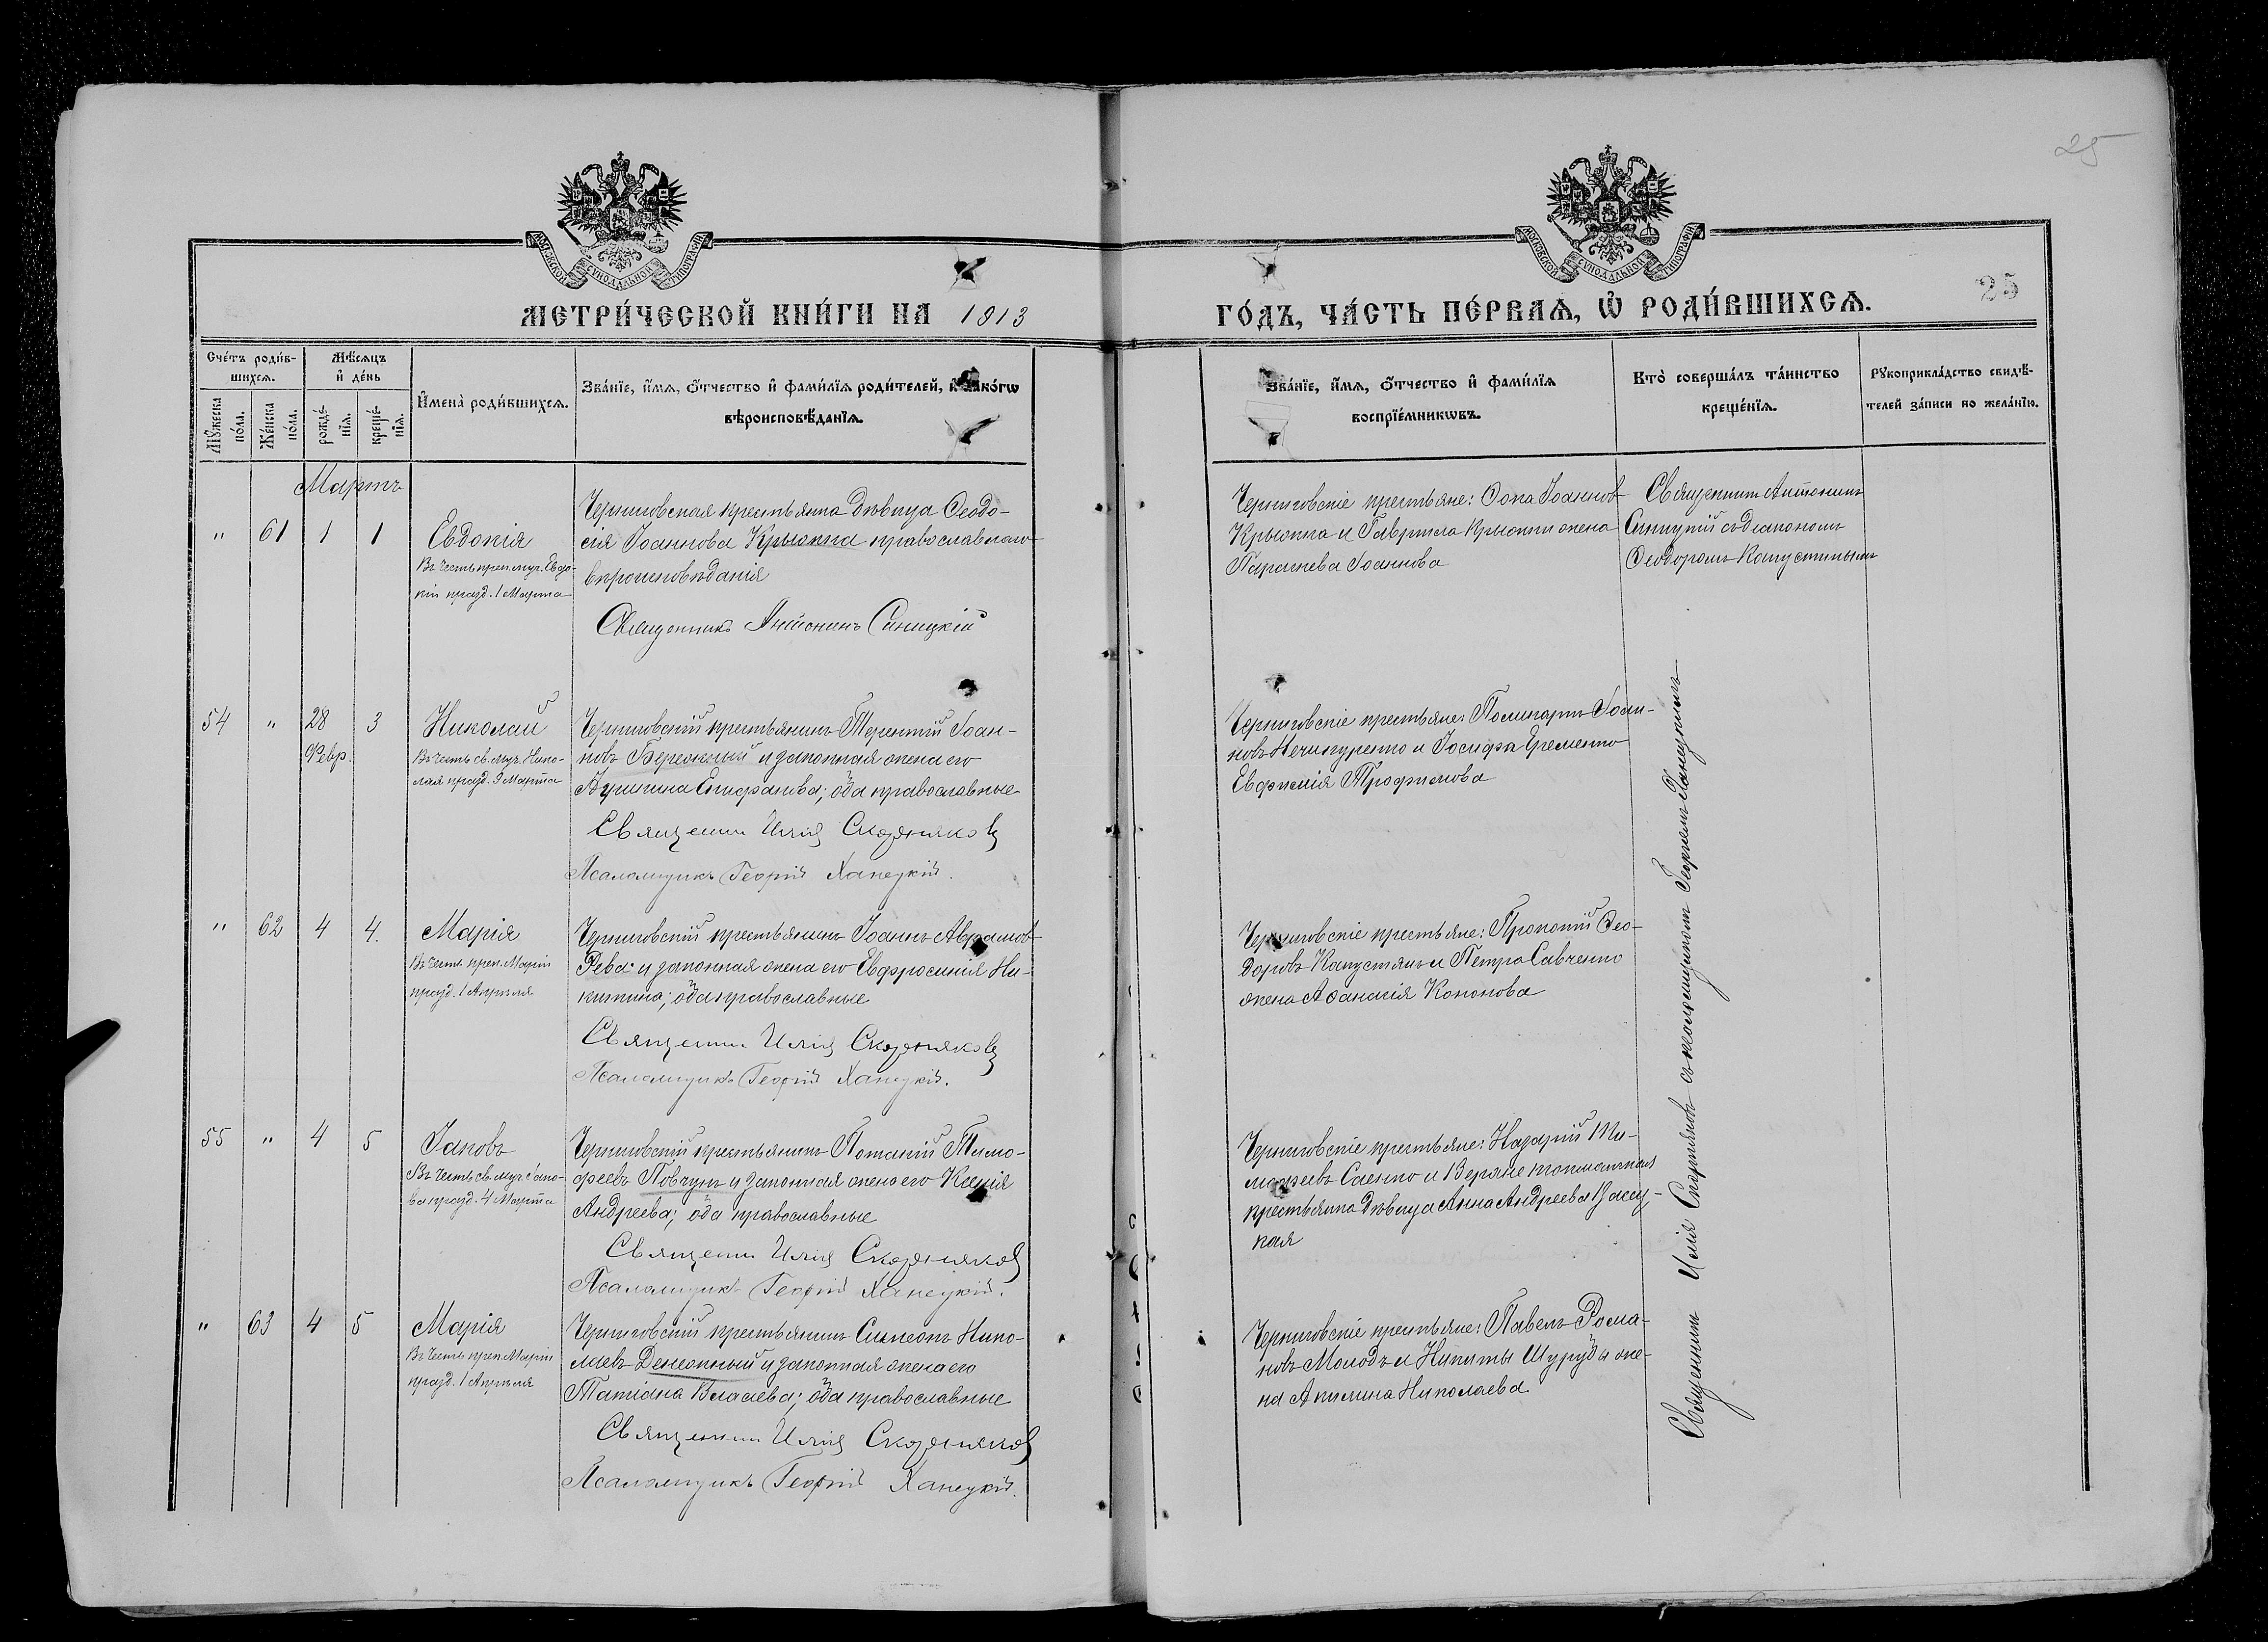 25
МОСКОВСКОЙ СѴНОДАЛЬНОЙ ТИПОГРАФІИ
МОСКОВСКОЙ СѴНОДАЛЬНОЙ ТИПОГРАФІИ
МЕТРИ́ЧЕСКОЙ КНИ́ГИ НА 1913
ГО́ДЪ, ЧА́СТЬ ПЕ́РВАѦ, Ѽ РОДИ́ВШИХСѦ.
25
Сче́тъ роди́в-
шихсѧ.
Мѣ́сѧцъ
и҆ де́нь
Мꙋ́жеска
по́ла.
Же́нска
по́ла.
рожде́-
нїѧ.
креще́-
нїѧ.
И҆мена̀ роди́вшихсѧ.
Зва́нїе, и҆́мѧ, ѻ҆́тчество и҆ фами́лїѧ роди́телей, и҆ како́гѡ
вѣроисповѣ́данїѧ.
Зва́нїе, и҆́мѧ, ѻ҆́тчество и҆ фами́лїѧ
воспрїе́мникѡвъ.
Кто̀ соверша́лъ та́инство
креще́нїѧ.
Рꙋкоприкла́дство свидѣ́-
телей за́писи по жела́нїю.
Мартъ
" 61 1 1
Евдокія
Въ честь преп. муч. Евдо-
кіи празд. 1 Марта
Черниговская крестьянка дѣвица Ѳеодо-
сія Іоаннова Крысюкка православнаго
вѣроисповѣданія
Священникъ Антонинъ Синицкій
Черниговскіе крестьяне: Ѳома Іоаннов
и Гавріила жена
Параскева Іоаннова
Священник Антонинъ
Синицкій съ діакономъ
Ѳеодоромъ Капустинымъ
54 " 28 3
Февр.
Николай
Въ честь св. муч. Нико-
лая празд. 9 Марта
Черниговскій крестьянинъ Терентій Іоан-
новъ Бережный и законная жена его
Акилина Епифанова; оба православные
Священник Илія Скорняковъ
Псаломщикъ Георгій Ханецкій.
Черниговскіе крестьяне: Поликарпъ Іоан-
новъ Нечипуренко и Іосифа Еременко
Евфимія Трофимова
" 62 4 4.
Марія
Въ честь преп. Маріи
празд. 1 Апрѣля
Черниговскій крестьянинъ Іоаннъ Аврамов
Рева и законная жена его Евфросинія Ни-
китина; оба православные
Священник Илія Скорняковъ
Псаломщикъ Георгій Ханецкій.
Черниговскіе крестьяне: Прокопій Ѳео-
доровъ Капустянъ и Петра Савченко
жена Аѳанасія Кононова
55 " 4 5
Іаковъ
Въ честь св. муч. Іако-
ва празд. 4 Марта
Черниговскій крестьянинъ Потапій Тимо-
феевъ Повчунъ и законная жена его Ксенія
Андреева; оба православные
Священник Илія Скорняков
Псаломщикъ Георгій Ханецкій.
Черниговскіе крестьяне: Назарій Ти-
мофеевъ Саенко и
крестьянка дѣвица Анна Андреева
кая
" 63 4 5
Марія
Въ честь преп. Маріи
празд. 1 Апрѣля
Черниговскій крестьянинъ Симеонъ Нико-
лаевъ Денежный и законная жена его
Татіана Власіева; оба православные
Священник Илія Скорняков
Псаломщикъ Георгій Ханецкій.
Черниговскіе крестьяне: Павелъ Рома-
новъ Молодъ и Никиты Шуруды же-
на Акилина Николаева
Священникъ Илія Скорняковъ съ псаломщикомъ Георгіемъ Ханецкимъ